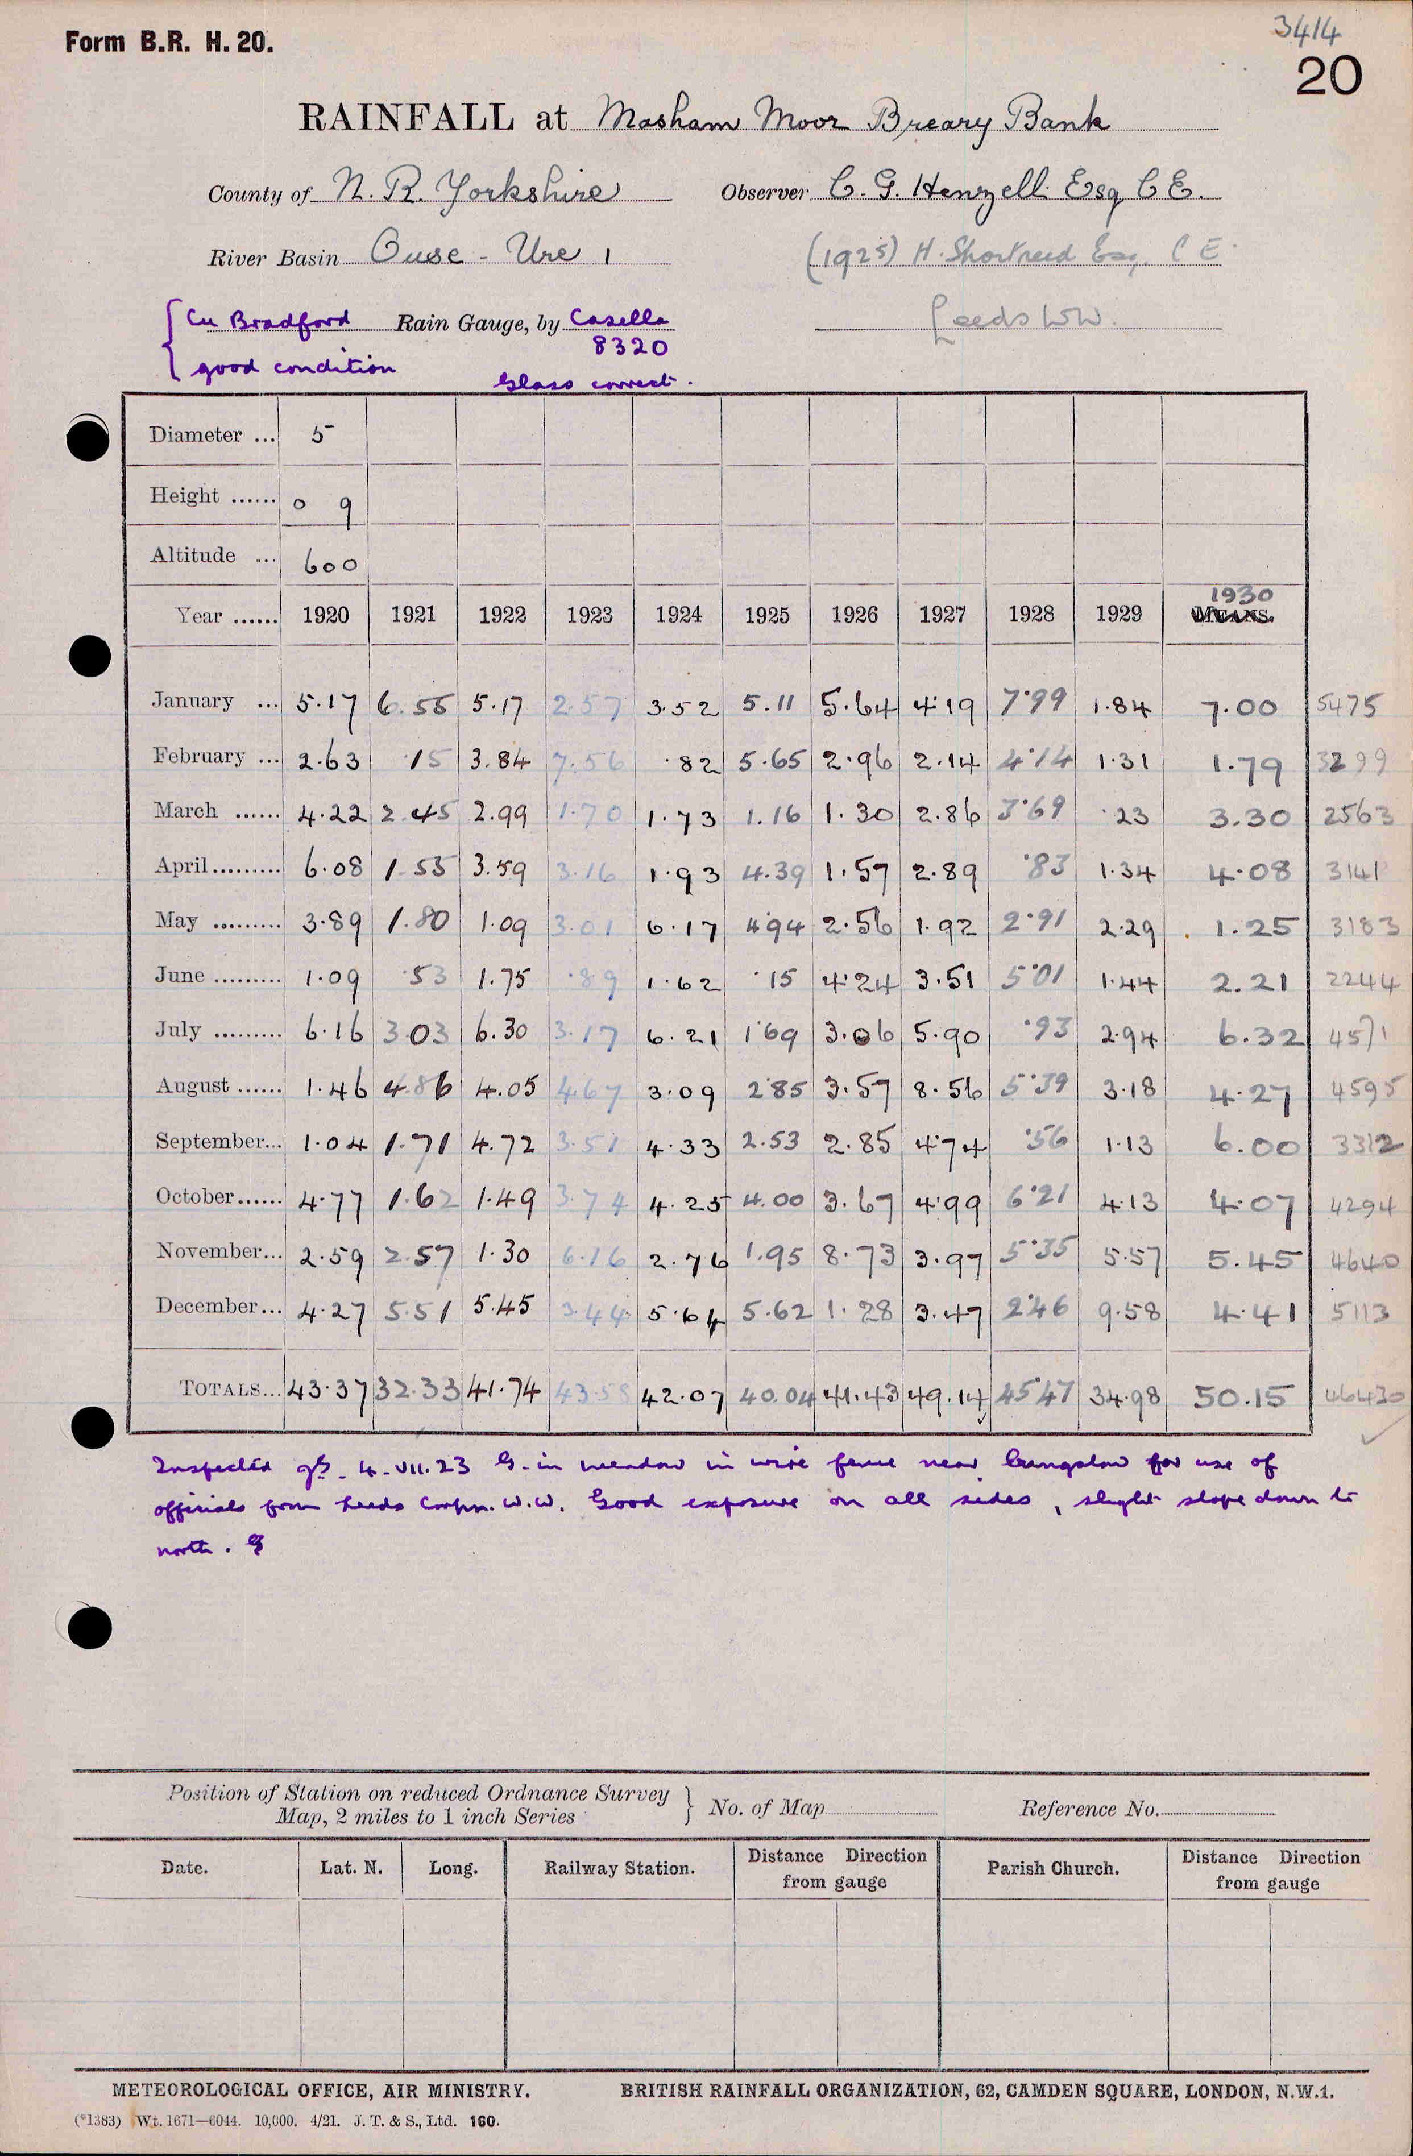 3414
Form B.R. H. 20.
20
RAINFALL at Masham Moor Breary Bank
County of N. R. Yorkshire Observer C. G. Henzell Esq C E.
River Basin Ouse - Ure 1 (1925) H. Shortreed Esq, C E.
{ Cu Bradford Rain Gauge, by Casella Leeds WW.
8320
good condition Glass correct.
Diameter ... 5
Height ...... 0 9
Altitude ... 600
1930
Year ...... 1920 1921 1922 1923 1924 1925 1926 1927 1928 1929 MEANS.
January ... 5.17 6.55 5.17 2.57 3.52 5.11 5.64 4.19 7.99 1.84 7.00 5475
February ... 2.63 .15 3.84 7.56 .82 5.65 2.96 2.14 4.14 1.31 1.79 3299
March ...... 4.22 2.45 2.99 1.70 1.73 1.16 1.30 2.86 3.69 .23 3.30 2563
April ......... 6.08 1.55 3.59 3.16 1.93 4.39 1.57 2.89 .83 1.34 4.08 3141
May ......... 3.89 1.80 1.09 3.01 6.17 4.94 2.56 1.92 2.91 2.29 1.25 3183
June ......... 1.09 .53 1.75 .89 1.62 .15 4.24 3.51 5.01 1.44 2.21 2244
July ......... 6.16 3.03 6.30 3.17 6.21 1.69 3.06 5.90 .93 2.94 6.32 4571
August ...... 1.46 4.86 4.05 4.67 3.09 2.85 3.57 8.56 5.39 3.18 4.27 4595
September... 1.04 1.71 4.72 3.51 4.33 2.53 2.85 4.74 .56 1.13 6.00 3312
October...... 4.77 1.62 1.49 3.74 4.25 4.00 3.67 4.99 6.21 4.13 4.07 4294
November... 2.59 2.57 1.30 6.16 2.76 1.95 8.73 3.97 5.35 5.57 5.45 4640
December... 4.27 5.51 5.45 3.44 5.64 5.62 1.28 3.47 2.46 9.58 4.41 5113
TOTALS... 43.37 32.33 41.74 43.58 42.07 40.04 41.43 49.14 45.47 34.98 50.15 46430
Inspected 4.VII.23 G. in meadow in wire fence near bungalow for use of
officials from Leeds Corpn. W.W. Good exposure on all sides, slight slope down to
north.
Position of Station on reduced Ordnance Survey
Map, 2 miles to 1 inch Series } No. of Map Reference No.
Date. Lat. N. Long. Railway Station. Distance Direction from gauge Parish Church. Distance Direction from gauge
METEOROLOGICAL OFFICE, AIR MINISTRY. BRITISH RAINFALL ORGANIZATION, 62, CAMDEN SQUARE, LONDON, N.W.1.
(*1383) Wt. 1671—6044. 10,000. 4/21. J. T. & S., Ltd. 160.